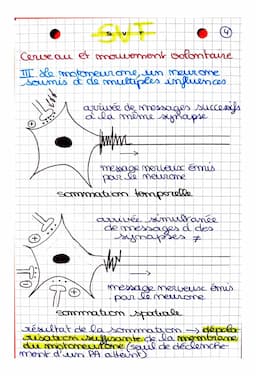 SVT
4
Cerveau et mouvement volontaire
III. Le motoneurone, un neurone
soumis à de multiples influences
arrivée de messages successifs
à la même synapse
message nerveux émis
par le neurone
sommation temporelle
arrivée simultanée
de messages à des
synapses ≠
message nerveux émis
par le neurone
sommation spatiale
résultat de la sommation → dépola
risation suffisante de la membrane
du motoneurone (seuil de déclenche-
ment d'un PA atteint)